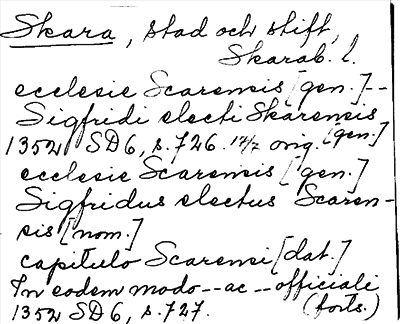 Skara, stad och stift,
Skarab. l.
ecclesie Scarensis [gen.]--
Sigfridi electi Skarensis
1352 SD6, s.726. 14/2 orig. [gen.]
ecclesie Scarensis [gen.]
Sigfridus electus Scaren-
sis [nom.]
capitulo Scarensi [dat.]
In eodem modo -- ac -- officiali
1352 SD6, s.727. (forts.)